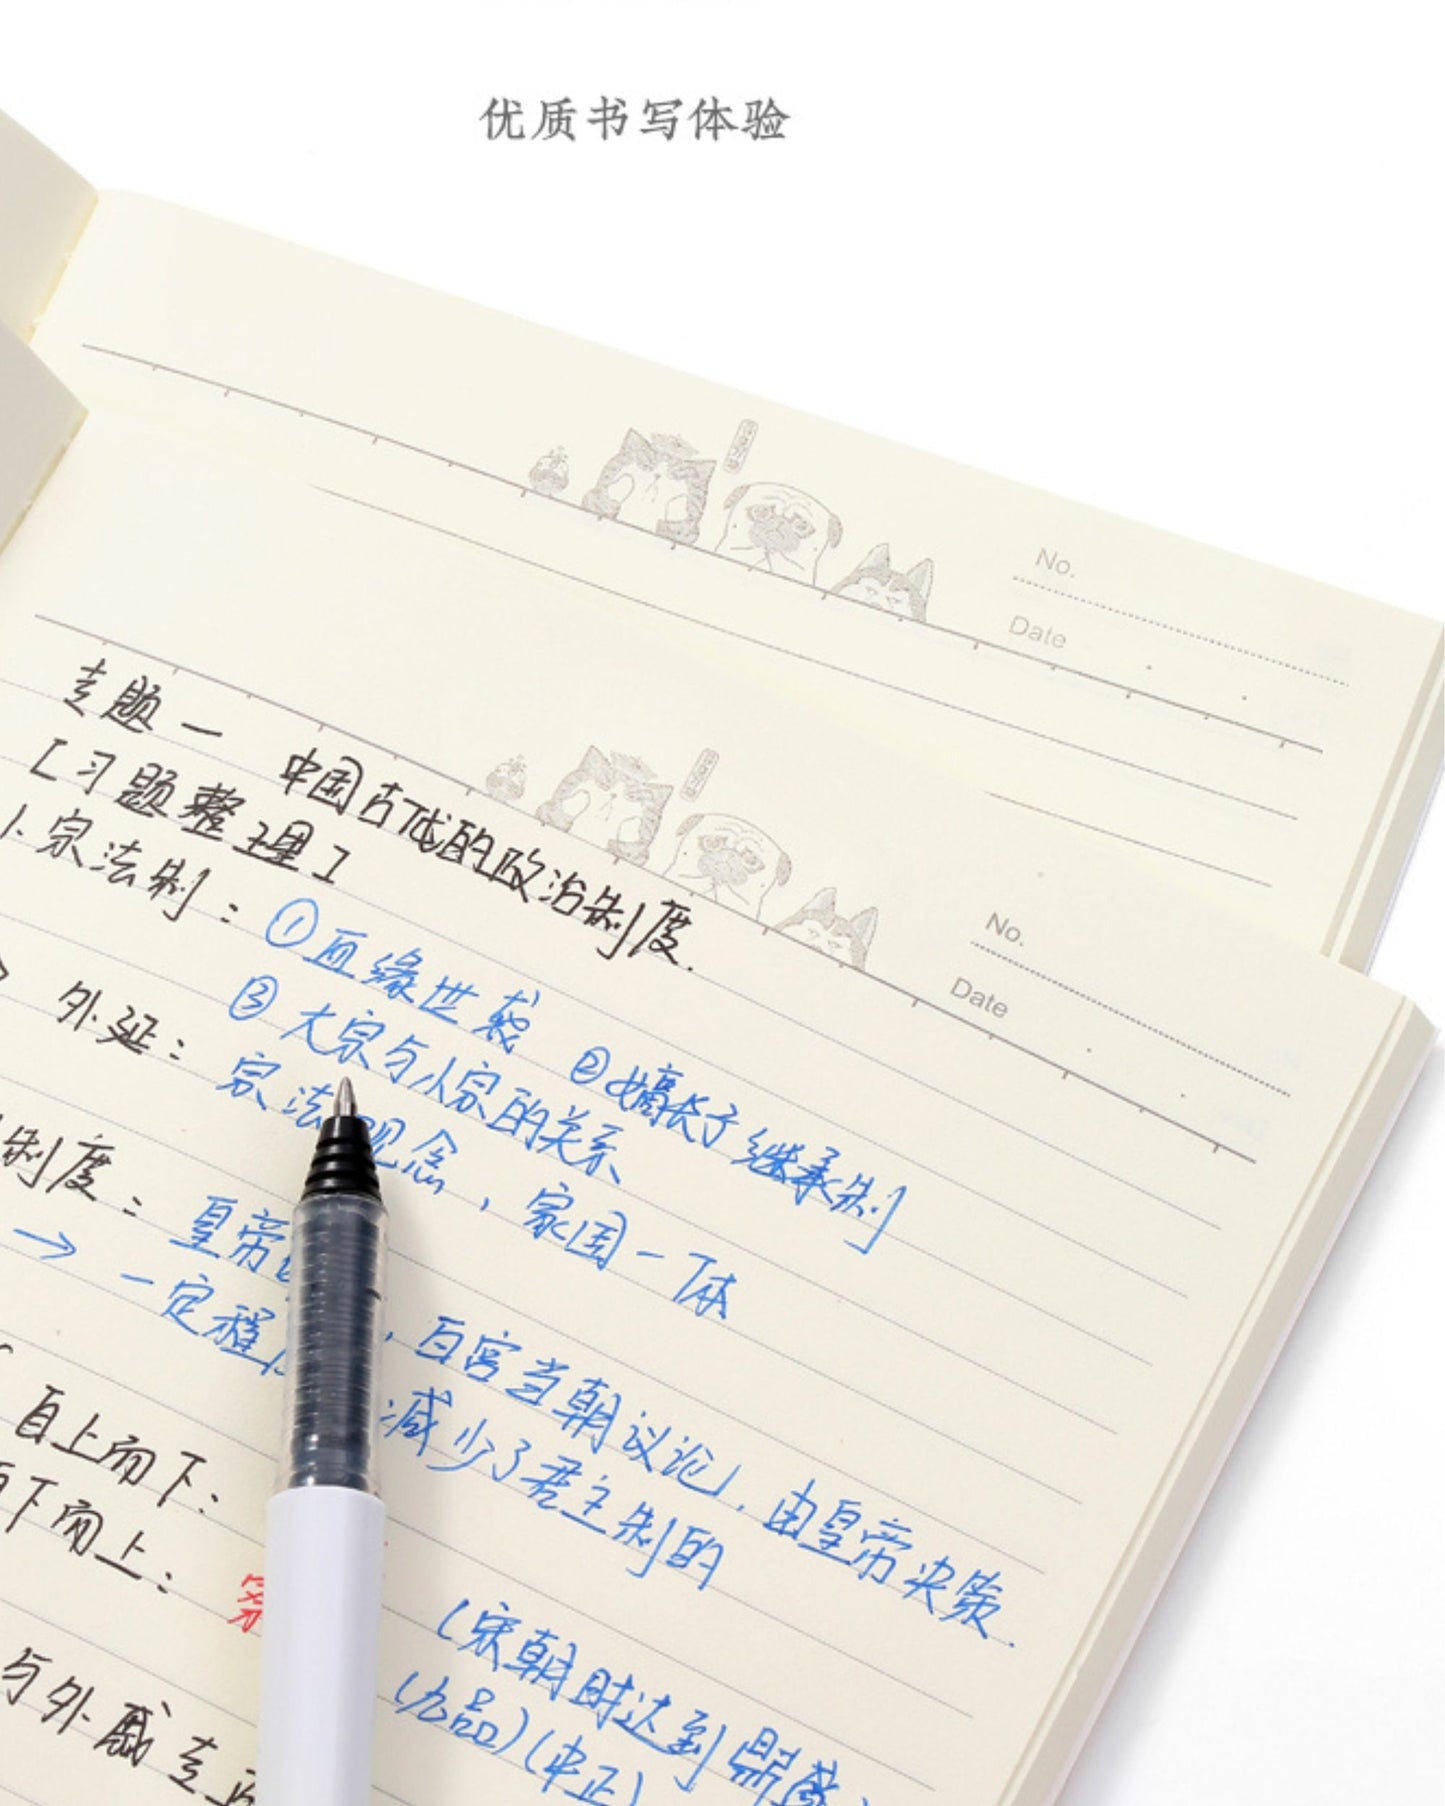 优质书写体验
No.
Date
No.
Date
专题一 中国古代的政治制度.
[习题整理]
1.宗法制:①血缘世袭 ②嫡长子继承制
③大宗与小宗的关系
外延:宗法观念,家国一体
制度:皇帝
百官当朝议论,由皇帝决策.
→一定程度 减少了君主制的
自上而下:
下而上:
(宋朝时达到鼎盛
(九品)(中正)
与外戚专